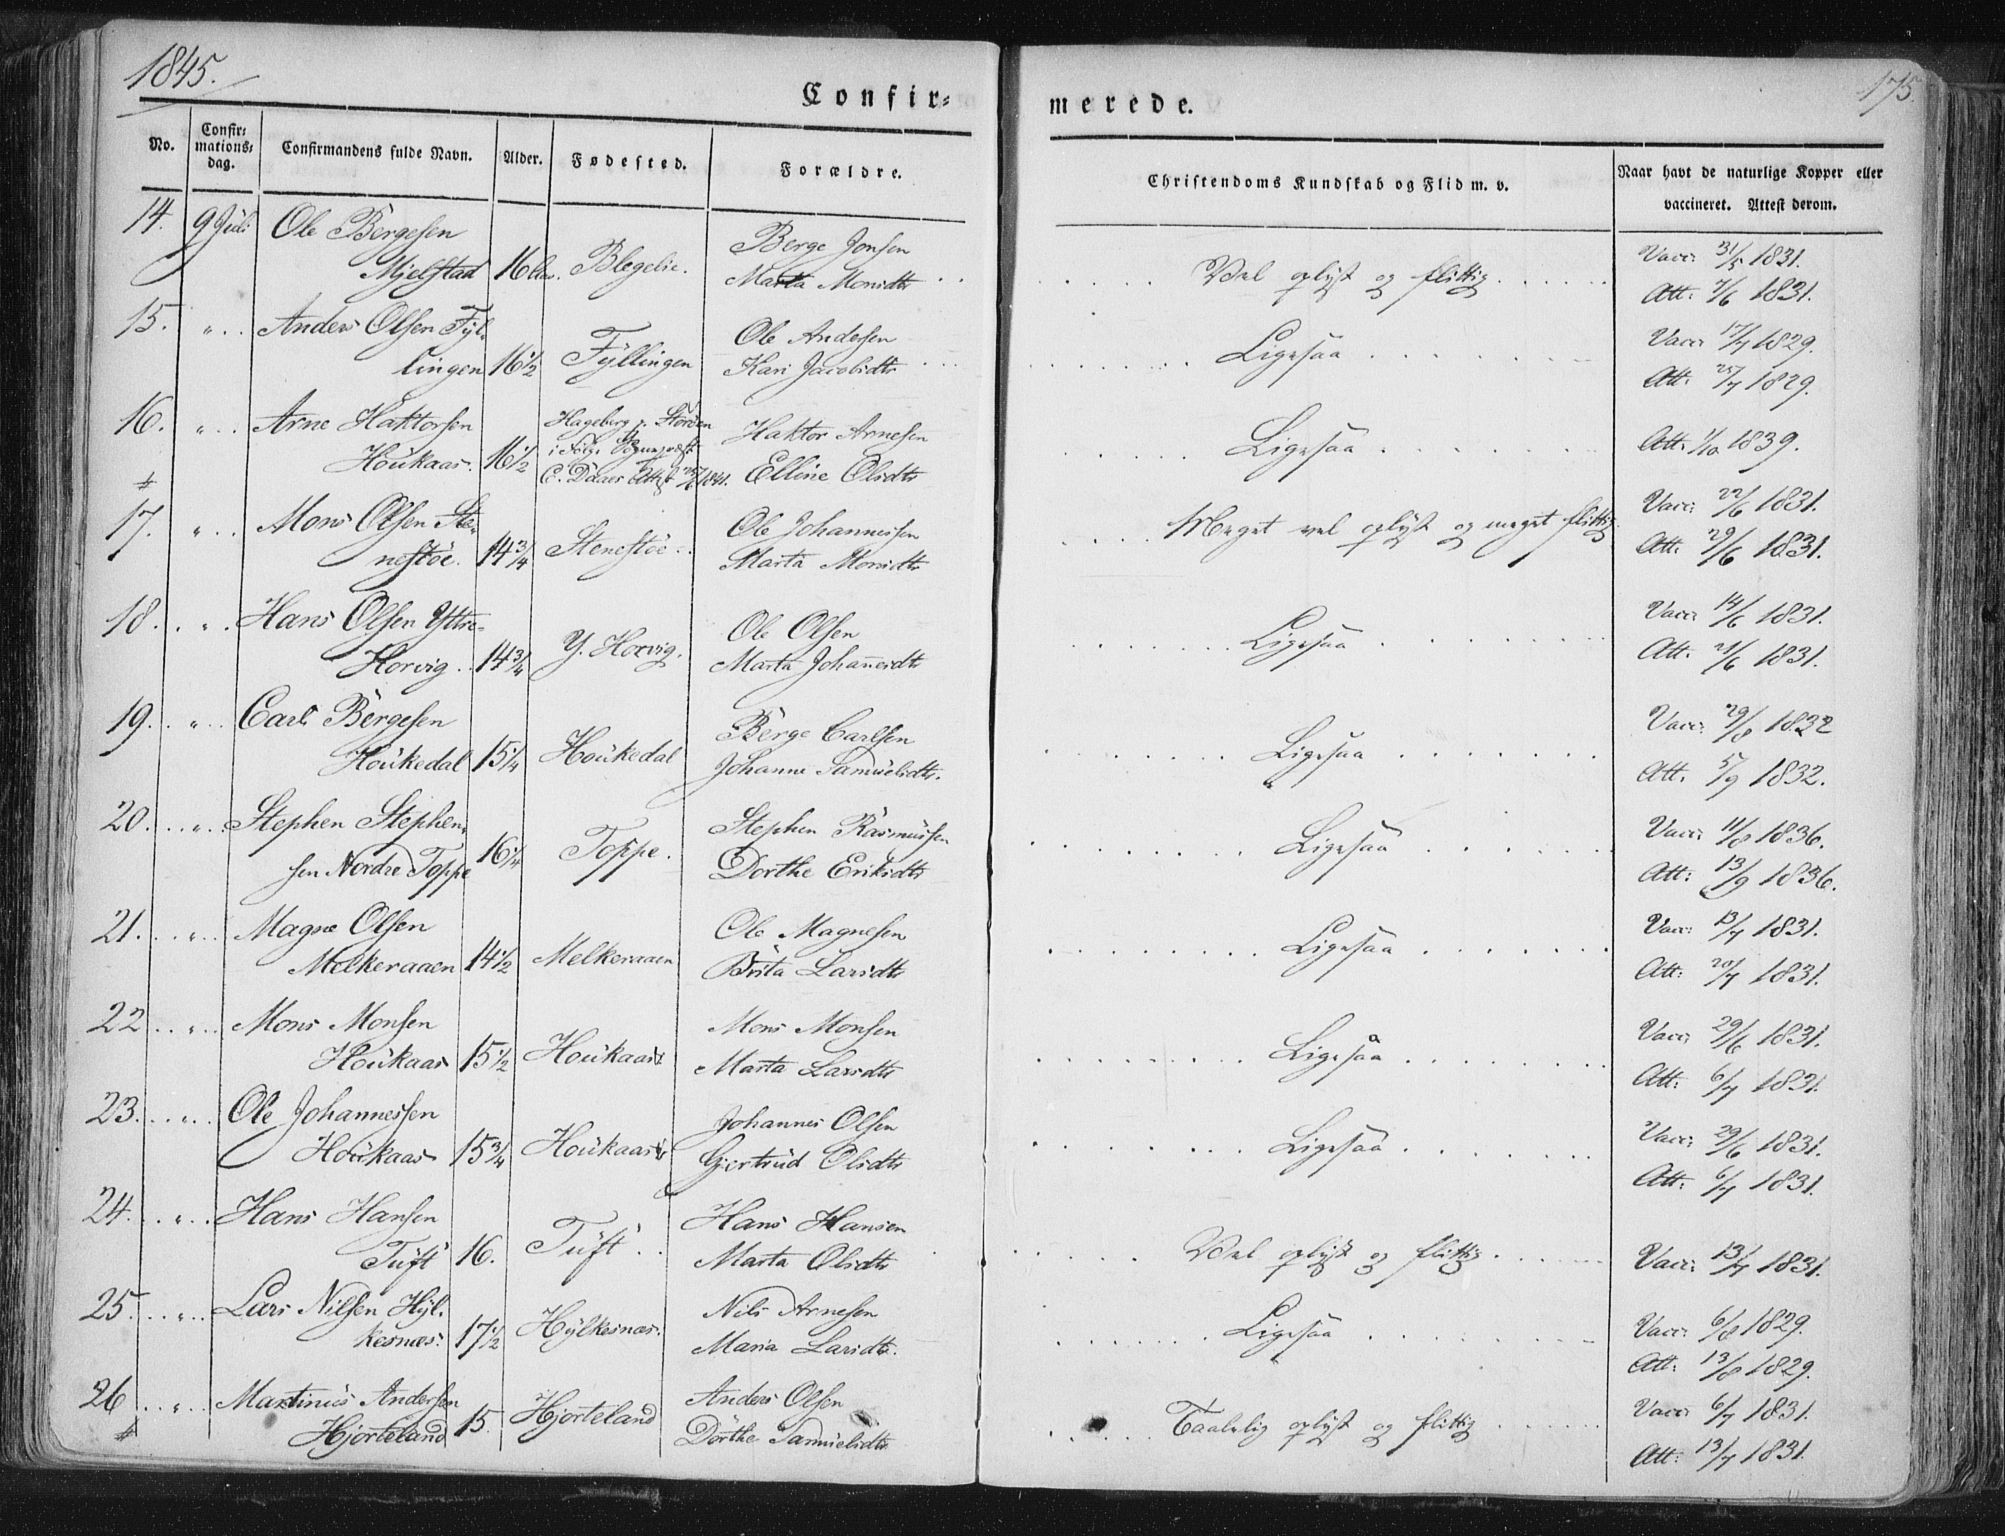 1845.
175.
Confir=
merede.
No.
Confir=
mations=
dag.
Confirmandens fulde Navn.
Alder.
Fødested.
Forældre.
Christendoms Kundskab og Flid m. v.
Naar havt de naturlige Kopper eller
vaccineret. Attest derom.
14. 9 Juli Ole Bergesen Berge Jonsen Vacc: 31/5 1831.
Mjelstad 16 Blegelie. Marta Monsdtr Vel oplyst og flittig Att: 7/6 1831.
15. " Anders Olsen Fyl= Ole Andersen Vacc: 17/7 1829.
lingen 16 1/2 Fyllingen Kari Jacobsdtr Ligesaa Att. 25/7 1829.
16. " Arne Haktorsen Hageberg Haktor Arnesen
Houkaas. 16 1/2 Elline Olsdtr Ligesaa Att: 1/10 1839.
E. Daaes Attest 1841.
17. " Mons Olsen Ste= Ole Johannessen Meget vel oplyst og meget flittig. Vacc: 22/6 1831.
nestöe. 14 3/4 Stenestöe. Marta Monsdtr Att: 29/6 1831.
18. " Hans Olsen Yttre= Ole Olsen Vacc: 14/6 1831.
Horvig. 14 3/4 Y. Horvig. Marta Johannesdtr Ligesaa Att. 21/6 1831.
19. " Carl Bergesen Berge Carlsen Vacc: 29/8 1832
Houkedal 15 1/4 Houkedal Johanne Samuelsdtr. Ligesaa Att. 5/9 1832.
20. " Stephen Stephen= Stephen Rasmussen Vacc: 11/8 1836.
sen Nordre Toppe 16 1/4 Toppe. Dorthe Eriksdtr Ligesaa Att: 13/9 1836.
21. " Magne Olsen Ole Magnesen Vacc: 13/7 1831.
Melkeraaen 14 1/2 Melkeraaen Brita Larsdtr Ligesaa Att: 20/7 1831.
22 " Mons Monsen Mons Monsen Vacc: 29/6 1831.
Houkaas 15 1/2 Houkaas Marta Larsdtr Ligesaa Att: 6/7 1831.
23. " Ole Johannessen Johannes Olsen Vacc: 29/6 1831.
Houkaas 15 3/4 Houkaas Gjertrud Olsdtr Ligesaa Att: 6/7 1831.
24. " Hans Hansen Hans Hansen
Tuft 16. Tuft. Marta Olsdtr Vel oplyst og flittig Vacc: 13/7 1831.
25. " Lars Nilsen Hyl= Nils Arnesen Vacc: 6/8 1829.
kesnæs. 17 1/2 Hylkesnæs. Maria Larsdtr. Ligesaa Att: 13/8 1829.
26 " Martinus Andersen Anders Olsen Vacc: 6/7 1831.
Hjorteland 15 Hjorteland Dorthe Samuelsdtr Taalelig oplyst og flittig Att: 13/7 1831.